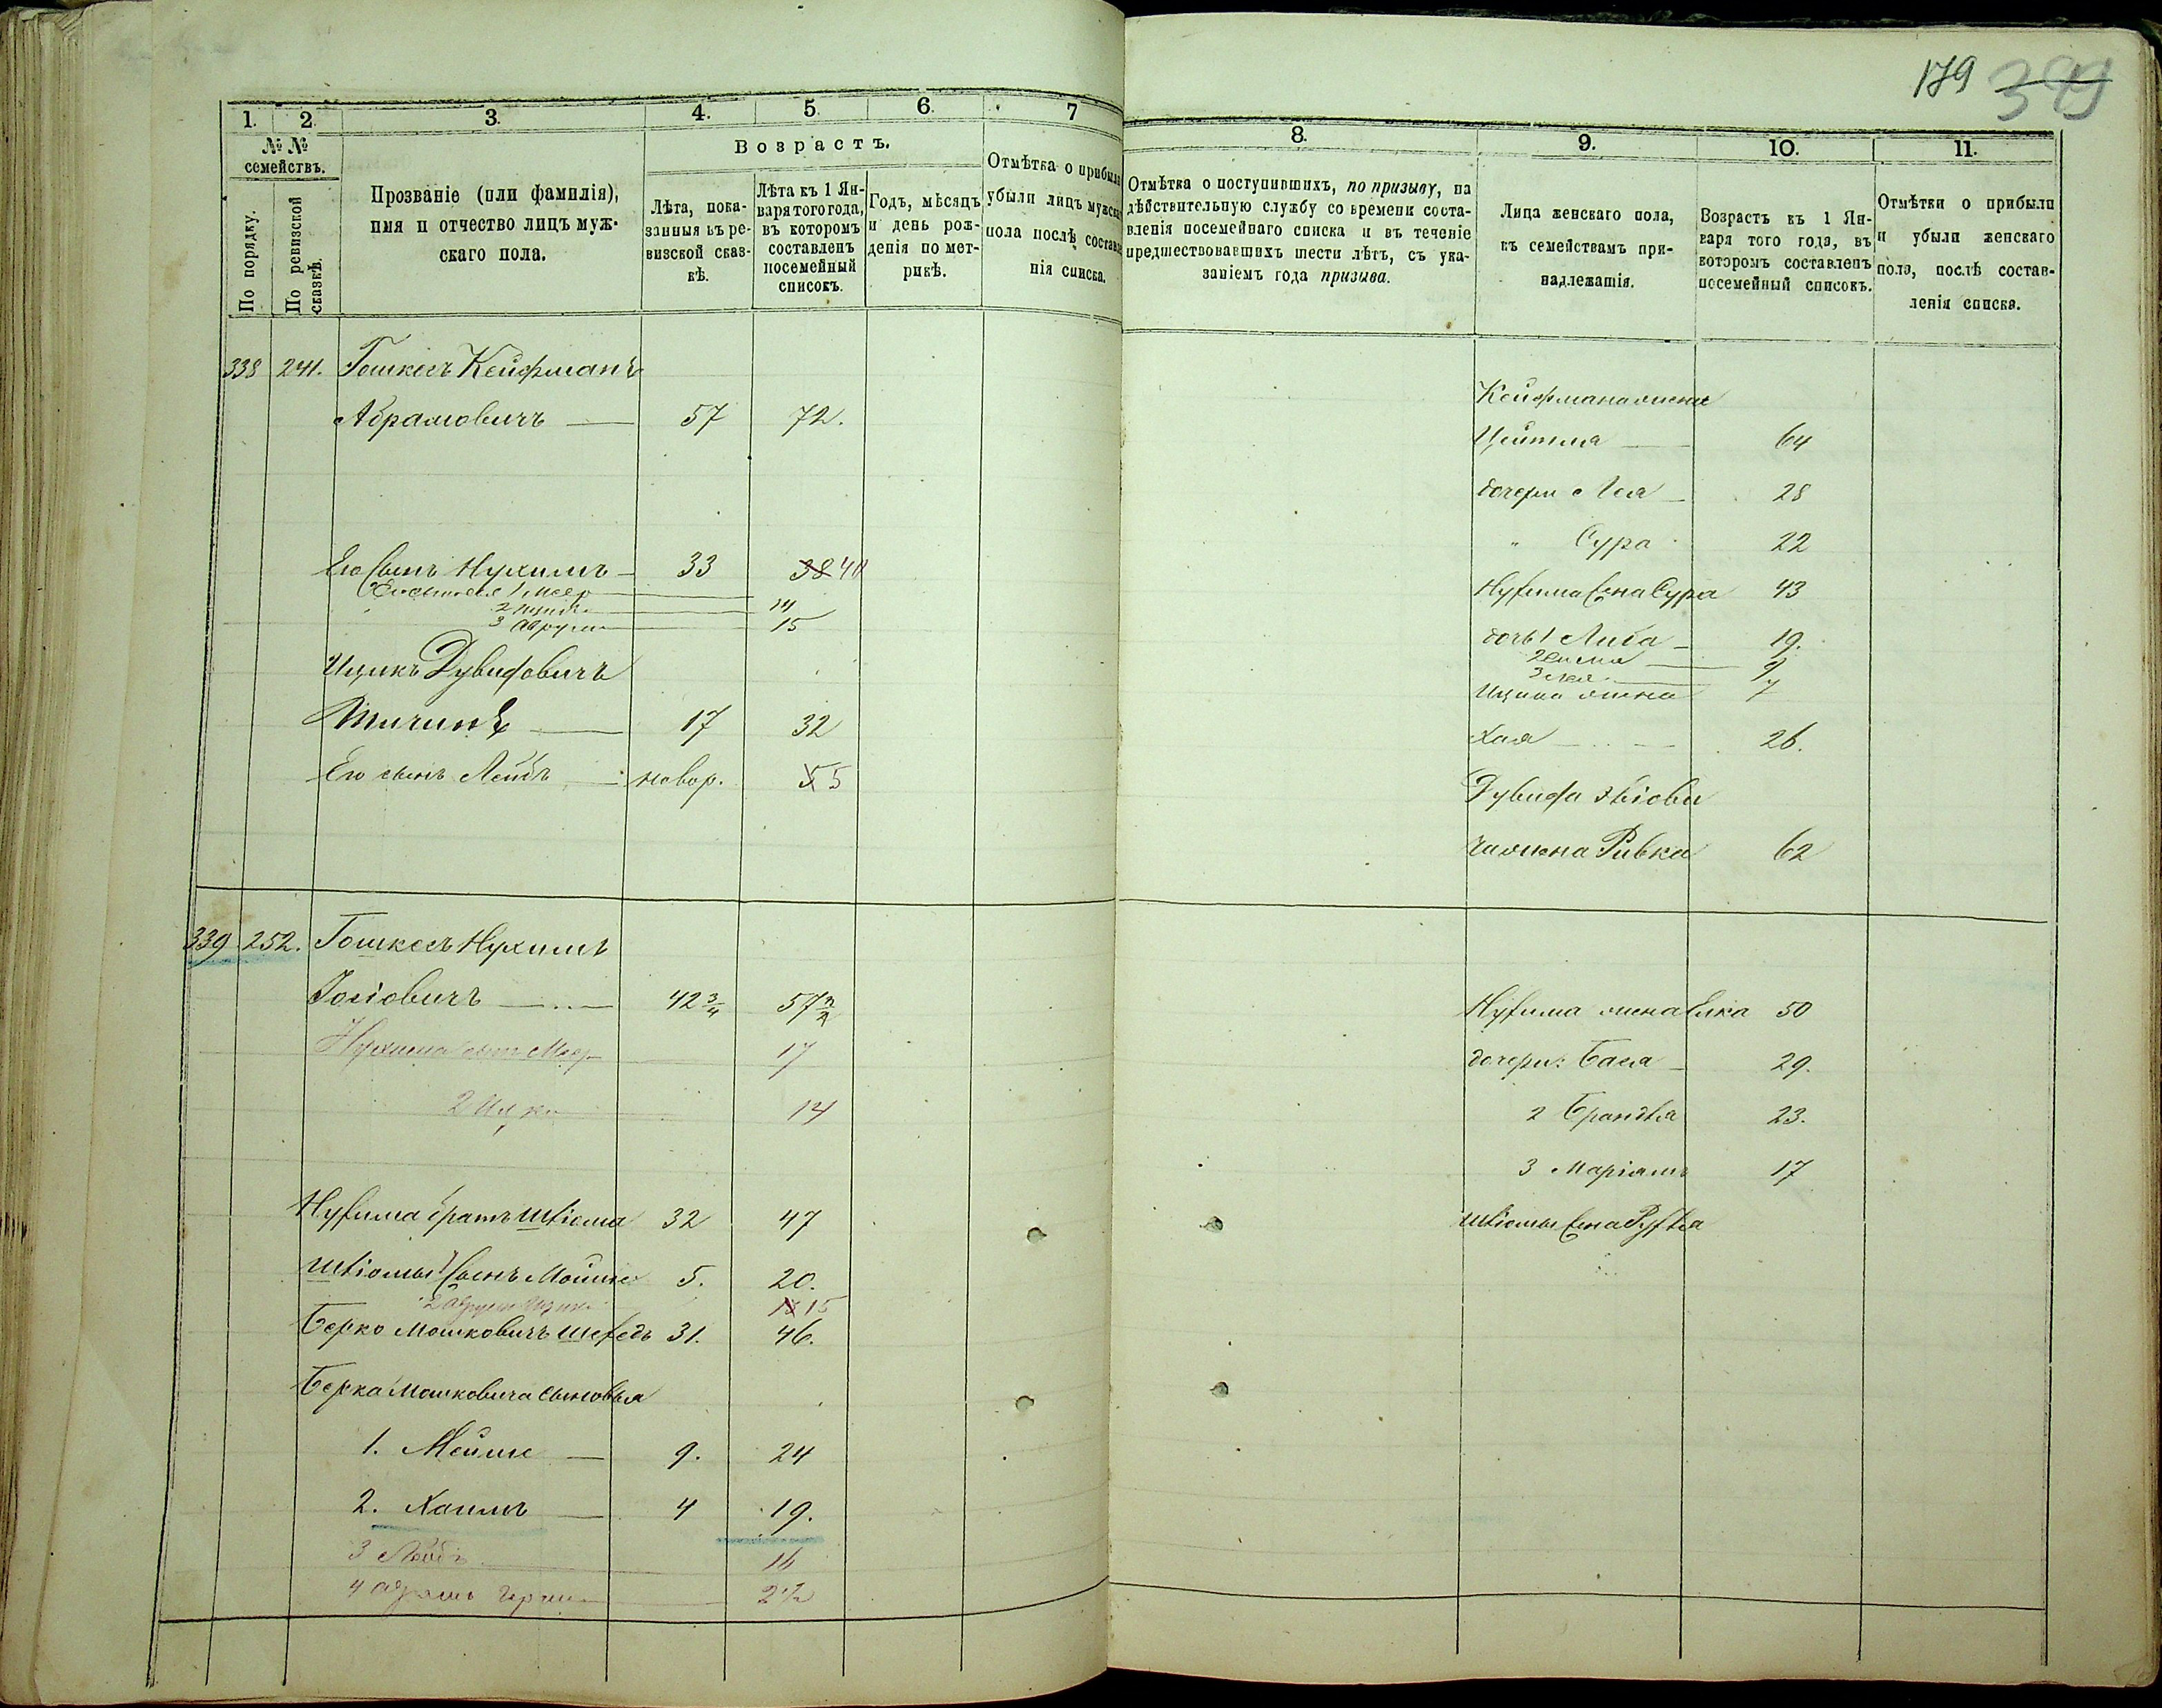 179 399
1. 2. 3. 4. 5. 6. 7
№ №
семействъ.
По порядку.
По ревизской сказкѣ.
Прозваніе (или фамилія),
имя и отчество лицъ муж-
скаго пола.
Возрастъ.
Лѣта, пока-
занныя въ ре-
визской сказ-
кѣ.
Лѣта къ 1 Ян-
варя того года,
въ которомъ
составленъ
посемейный
списокъ.
Годъ, мѣсяцъ
и день рож-
денія по мет-
рикѣ.
Отмѣтка о прибыли
убыли лицъ мужска
пола послѣ составле
нія списка.
8. 9. 10. 11.
Отмѣтка о поступившихъ, по призыву, на
дѣйствительную службу со времени соста-
вленія посемейнаго списка и въ теченіе
предшествовавшихъ шести лѣтъ, съ ука-
заніемъ года призыва.
Лица женскаго пола,
къ семействамъ при-
надлежащія.
Возрастъ къ 1 Ян-
варя того года, въ
которомъ составленъ
посемейный списокъ.
Отмѣтки о прибыли
и убыли женскаго
пола, послѣ состав-
ленія списка.
338 241. Гошкесъ Кейфманъ
Абрамовичъ — 57 72.
Его сынъ Нухимъ — 33 38 40
1 Меер
2 14
3 15
Ицикъ Дувидовичъ
17 32
Его сынъ Лейбъ — новор. 5 5
Кейфмана жена
64
дочери Лея — 28
" Сура 22
Нухима жена Сура 43
дочь 1 Либа — 19.
2 9
3 Лея 7
Ицика жена
Хая — 26.
Дувида
жена Ривка 62
339 252. Гошкесъ Нухимъ
Іосіовичъ — 42 3/4 57
Нухима сынъ Меер 17
2 Ицко 14
Нухима братъ Шліома 32 47
Шліомы 1 сынъ Мойше 5. 20.
2 15 15
Берко Мошковичъ 31. 46.
Берка Мошковича сыновья
1. Мойше — 9. 24
2. Хаимъ — 4 19.
3 Лейбъ 16
4 2 1/2
Нухима жена Елка 50
дочери: Бася — 29.
2 Брандля 23.
3 Маріямъ 17
Шліомы жена Рухля